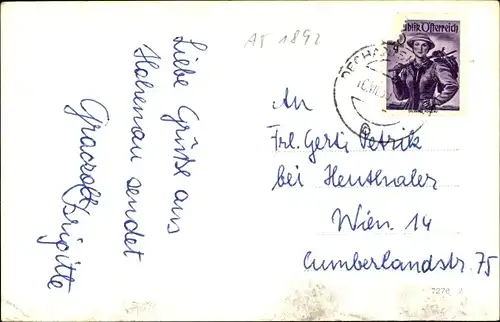 AT 1892
Liebe Grüße aus
Hohenau sendet
Brigitte
An
Frl. Gerti Petrik
bei Henthaler
Wien 14
Cumberlandstr. 75
Republik Österreich
7276